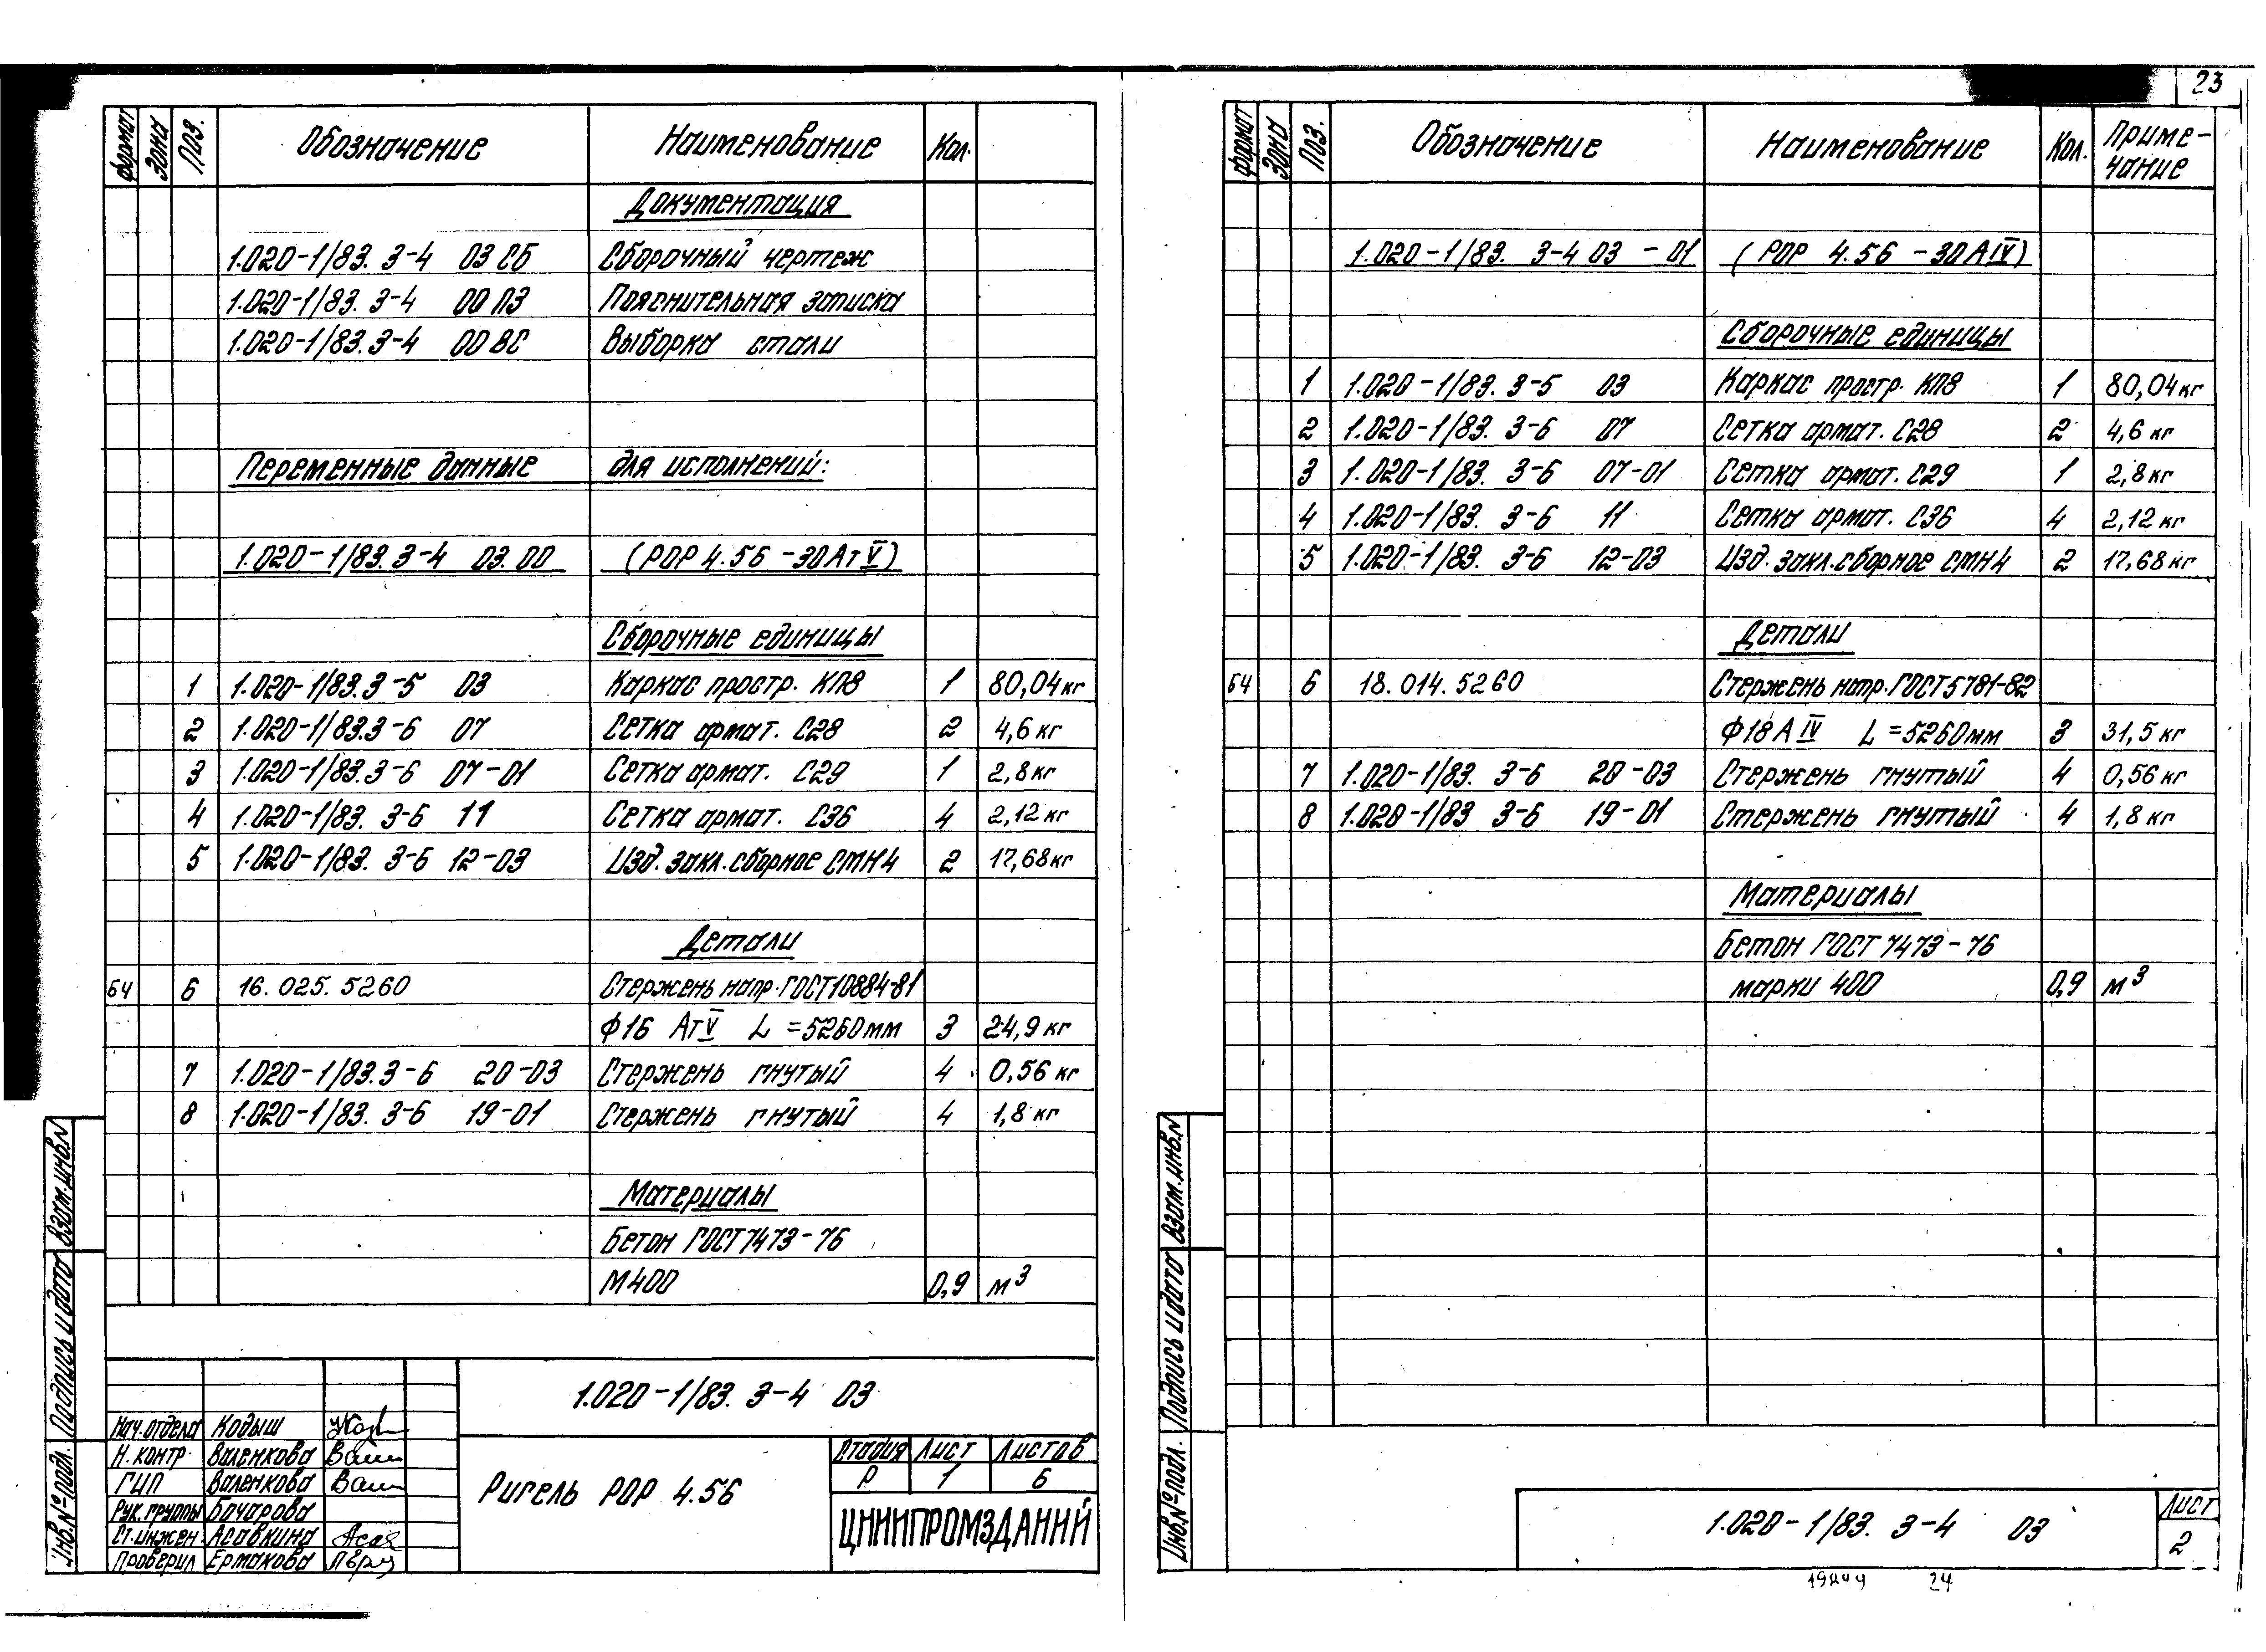 23
Формат Зона Поз. Обозначение Наименование Кол.
Документация
1.020-1/83. 3-4 03 СБ Сборочный чертеж
1.020-1/83. 3-4 00 ПЗ Пояснительная записка
1.020-1/83. 3-4 00 ВС Выборка стали
Переменные данные для исполнений:
1.020-1/83. 3-4 03.00 (РОР 4.56 -30АтV)
Сборочные единицы
1 1.020-1/83. 3-5 03 Каркас простр. КП8 1 80,04 кг
2 1.020-1/83. 3-6 07 Сетка армат. С28 2 4,6 кг
3 1.020-1/83. 3-6 07-01 Сетка армат. С29 1 2,8 кг
4 1.020-1/83. 3-6 11 Сетка армат. С36 4 2,12 кг
5 1.020-1/83. 3-6 12-03 Изд. закл. сборное СМН4 2 17,68 кг
Детали
БЧ 6 16.025.5260 Стержень напр. ГОСТ 10884-81
Ф16 АтV L=5260мм 3 24,9 кг
7 1.020-1/83. 3-6 20-03 Стержень гнутый 4 0,56 кг
8 1.020-1/83. 3-6 19-01 Стержень гнутый 4 1,8 кг
Материалы
Бетон ГОСТ 7473-76
М400 0,9 м³
Взам. инв. N
Подпись и дата
Инв. № подл.
1.020-1/83. 3-4 03
Нач. отдела Кодыш
Н. контр. Валенкова
ГИП Валенкова
Рук. группы Бочарова
Ст. инжен. Асавкина
Проверил Ермакова
Ригель РОР 4.56
Стадия Лист Листов
Р 1 6
ЦНИИПРОМЗДАНИЙ
Формат Зона Поз. Обозначение Наименование Кол. Приме-
чание
1.020-1/83. 3-4 03 -01 (РОР 4.56 -30АIV)
Сборочные единицы
1 1.020-1/83. 3-5 03 Каркас простр. КП8 1 80,04 кг
2 1.020-1/83. 3-6 07 Сетка армат. С28 2 4,6 кг
3 1.020-1/83. 3-6 07-01 Сетка армат. С29 1 2,8 кг
4 1.020-1/83. 3-6 11 Сетка армат. С36 4 2,12 кг
5 1.020-1/83. 3-6 12-03 Изд. закл. сборное СМН4 2 17,68 кг
Детали
БЧ 6 18.014.5260 Стержень напр. ГОСТ 5781-82
Ф18АIV L=5260мм 3 31,5 кг
7 1.020-1/83. 3-6 20-03 Стержень гнутый 4 0,56 кг
8 1.020-1/83 3-6 19-01 Стержень гнутый 4 1,8 кг
Материалы
Бетон ГОСТ 7473-76
марки 400 0,9 м³
Взам. инв. N
Подпись и дата
Инв. № подл.
1.020-1/83. 3-4 03
Лист
2
24